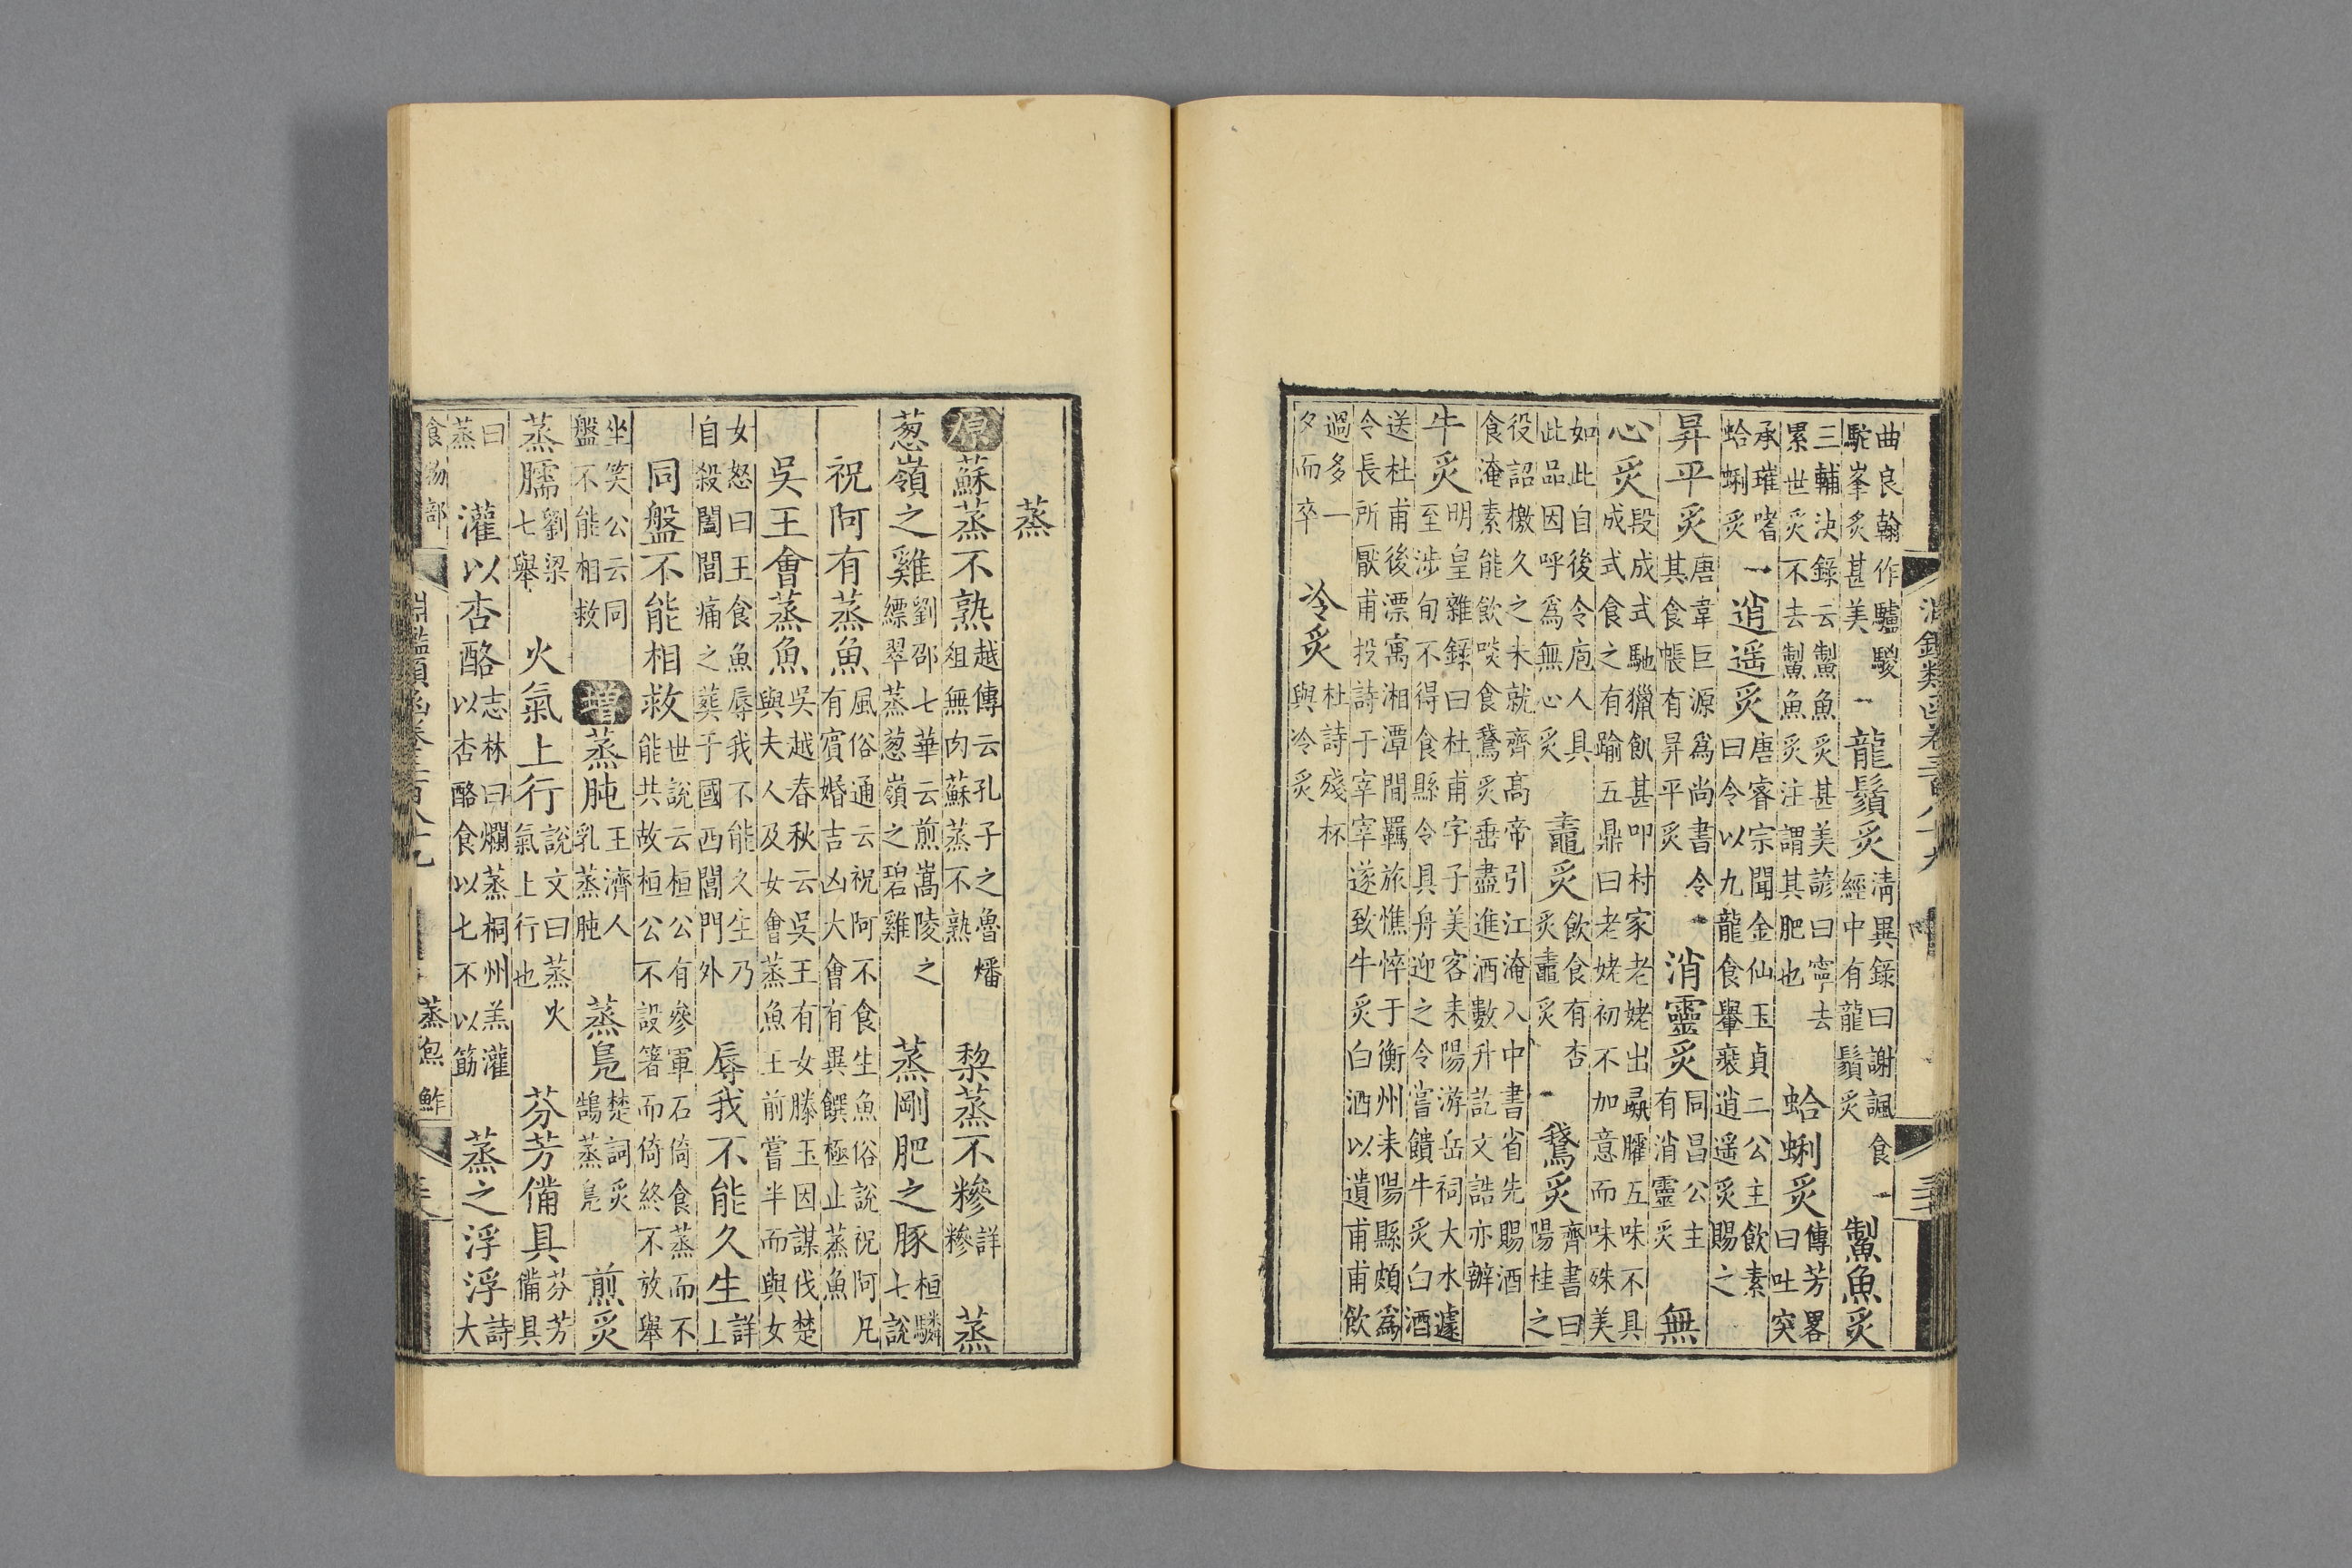 曲良翰作驢騣駝峯炙甚美一龍鬚炙清異錄曰謝諷食經中有龍鬚炙一鯯魚炙
三輔決錄云鯯魚炙甚美諺曰寧去累世炙不去鯯魚炙注謂其肥也蛤蜊炙傳芳畧曰吐突
承璀嗜蛤蜊炙一逍遥炙唐睿宗聞金仙玉貞二公主飲素曰令以九龍食轝裝逍遥炙賜之
昇平炙唐韋巨源爲尚書令其食帳有昇平炙一消靈炙同昌公主有消靈炙無
心炙段成式馳獵飢甚叩村家老姥出彘臛五味不具成式食之有踰五鼎曰老姥初不加意而味殊美
如此自後令庖人具此品因呼爲無心炙鼃炙飲食有杏炙鼃炙一鵞炙齊書曰陽桂之
役詔檄久之未就齊髙帝引江淹入中書省先賜酒食淹素能飲啖食鵞炙垂盡進酒數升訖文誥亦辦
牛炙明皇雜錄曰杜甫字子美客耒陽游岳祠大水遽至涉旬不得食縣令具舟迎之令嘗饋牛炙白酒
送杜甫後漂寓湘潭間羈旅憔悴于衡州耒陽縣頗爲令長所厭甫投詩于宰宰遂致牛炙白酒以遺甫甫飲
過多一夕而卒冷炙杜詩殘杯與冷炙
蒸
原蘇蒸不熟越傳云孔子之魯燔俎無肉蘇蒸不熟黎蒸不糝詳糝蒸
葱嶺之雞劉邵七華云煎蒿陵之縹翠蒸葱嶺之碧雞蒸剛肥之豚桓驎七說
祝阿有蒸魚風俗通云祝阿不食生魚俗說祝阿凡有賓婚吉凶大會有異饌極止蒸魚
吳王會蒸魚吳越春秋云吳王有女滕玉因謀伐楚與夫人及女會蒸魚王前嘗半而與女
女怒曰王食魚辱我不能久生乃自殺闔閭痛之葬于國西閶門外辱我不能久生詳上
同盤不能相救世說云桓公有參軍石倚食蒸而不能共故桓公不設箸而倚終不放舉
坐笑公云同盤不能相救增蒸肫王濟人乳蒸肫蒸鳬楚詞炙鵠蒸鳬煎炙
蒸臑劉梁七舉火氣上行說文曰蒸火氣上行也芬芳備具芬芳備具
曰蒸灌以杏酪志林曰爛蒸桐州羔灌以杏酪食以匕不以筯蒸之浮浮詩大
食物部 淵鑑類函卷三百八十九 蒸 鮝 鮓